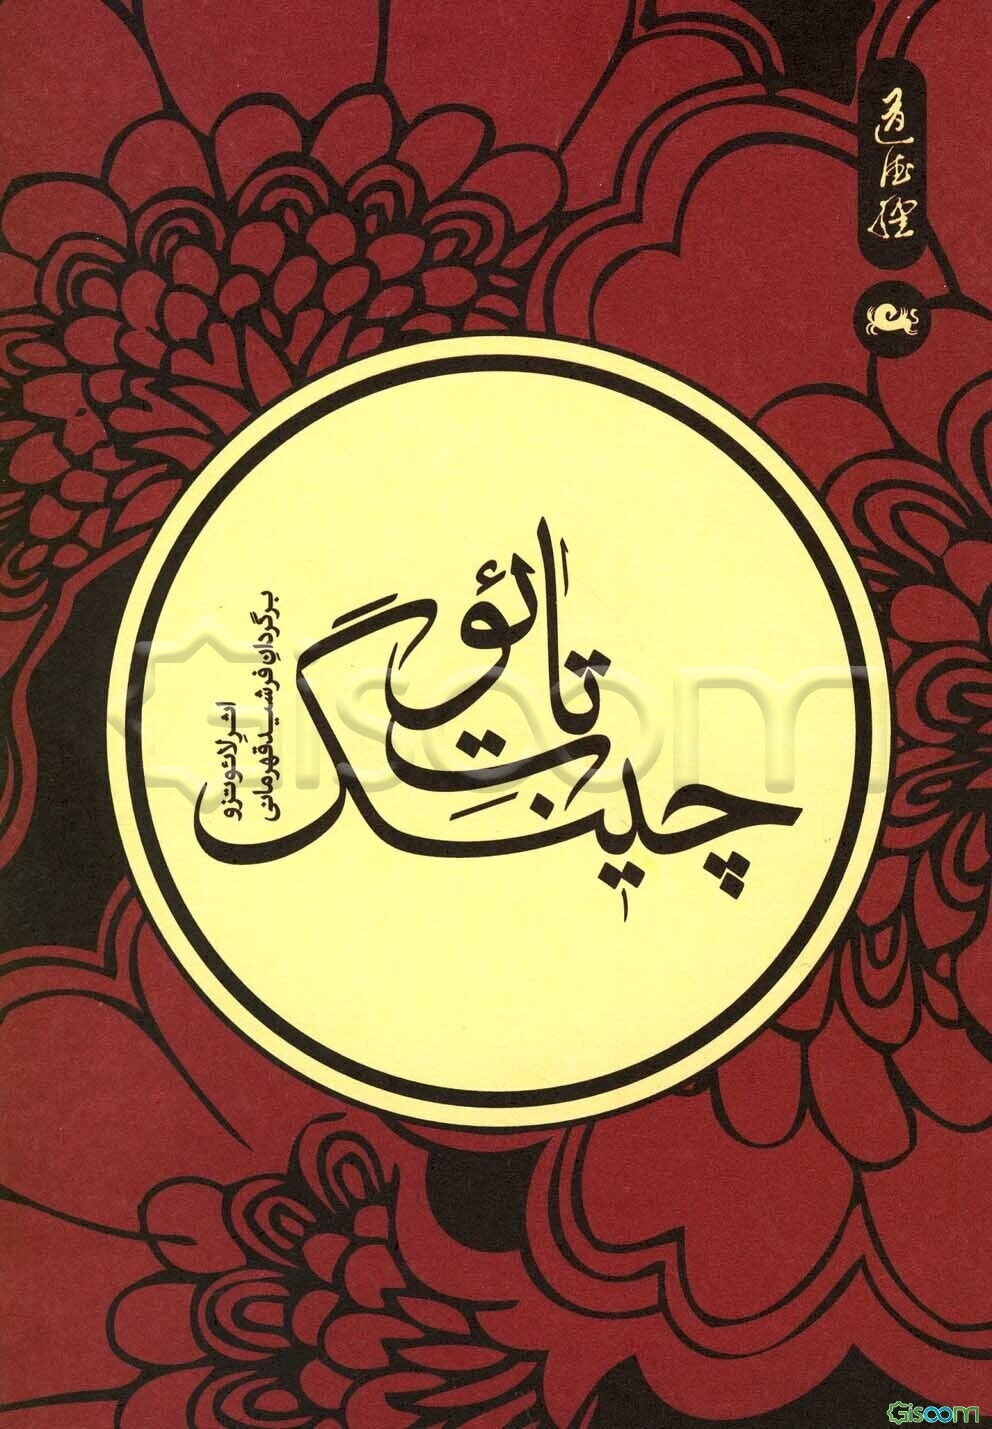 道德經
تائو
ت
چینگ
اثرِ لائوتزو
برگردانِ فرشید قهرمانی
Gisoom
Gisoom